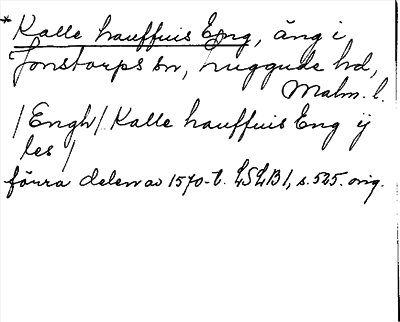 *Kalle hauffuis Eng, äng i
Jonstorps sn, Luggude hd,
Malm. l.
/Engh/ Kalle hauffuis Eng ij
les /
förra delen av 1570-t. LSLB1, s. 525. orig.